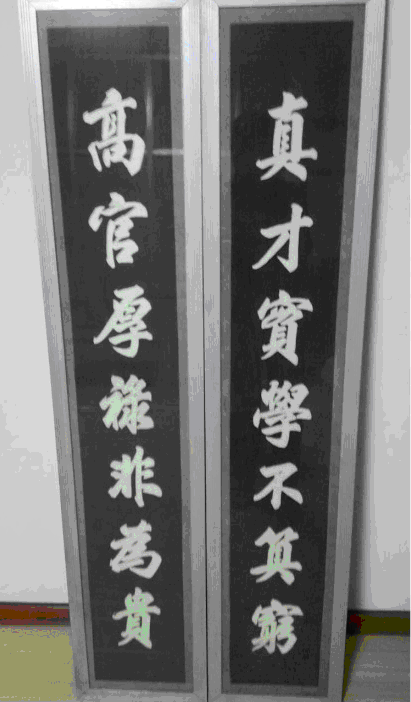 真才實學不算窮
高官厚祿非為貴